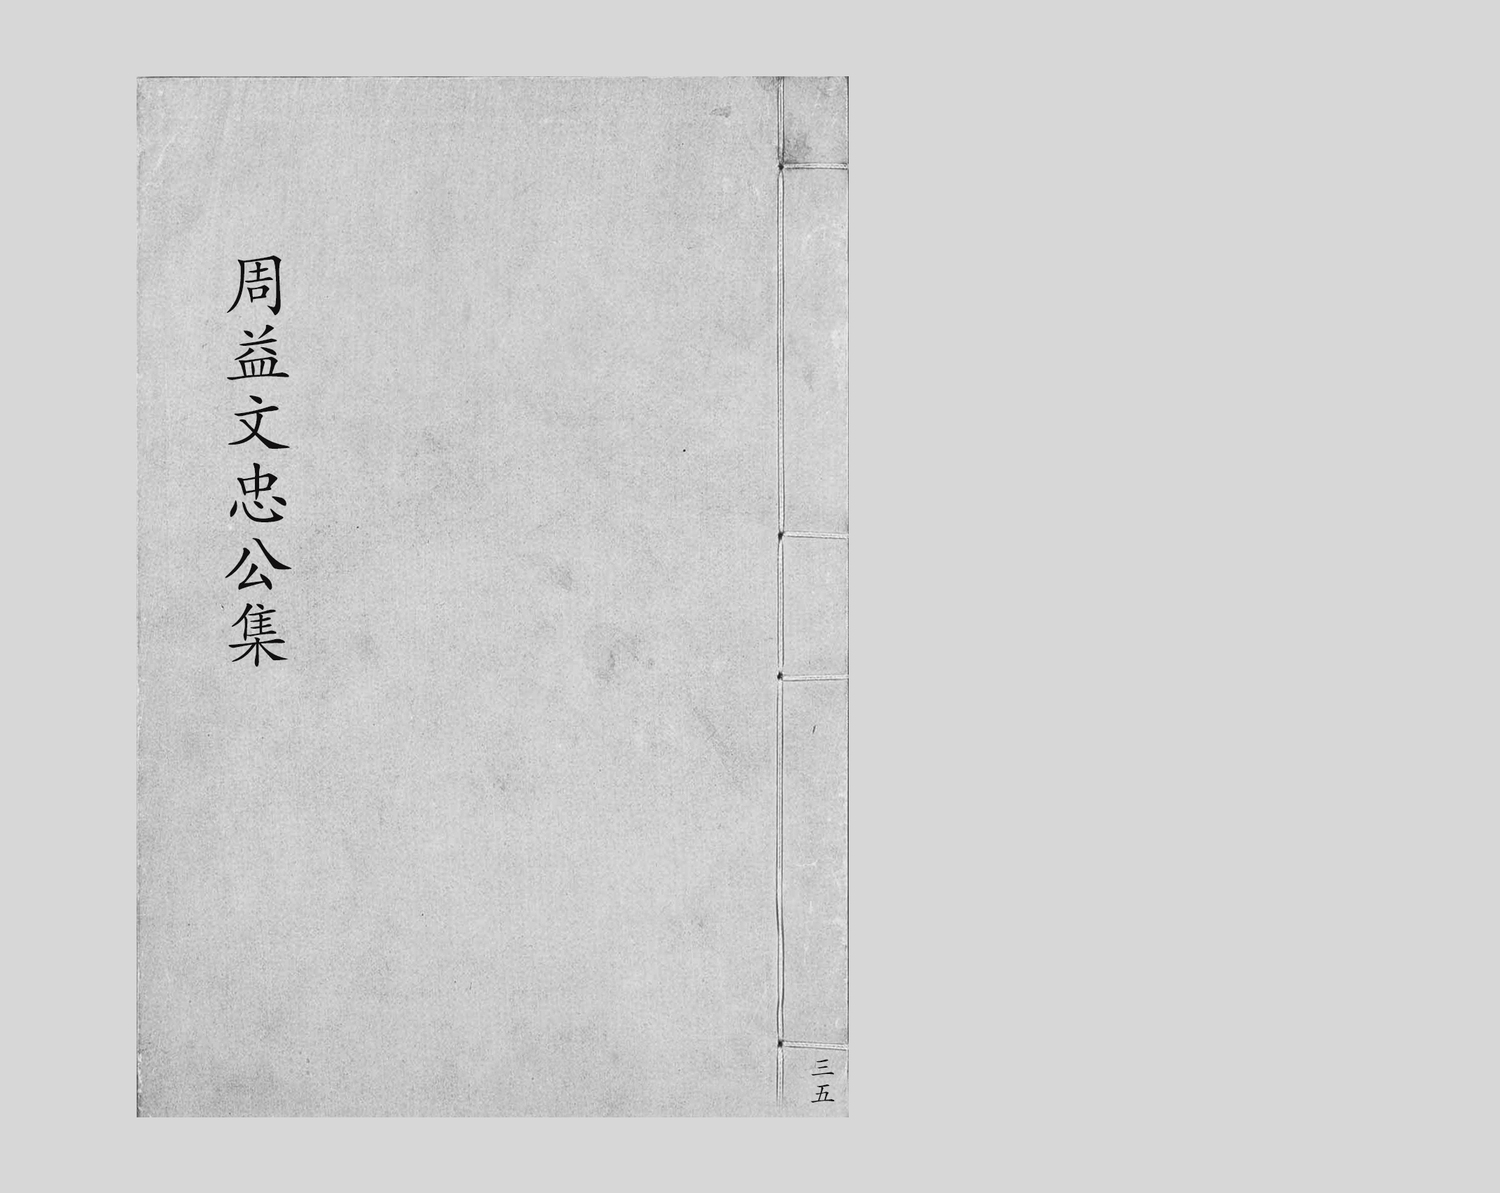 周益文忠公集
三五